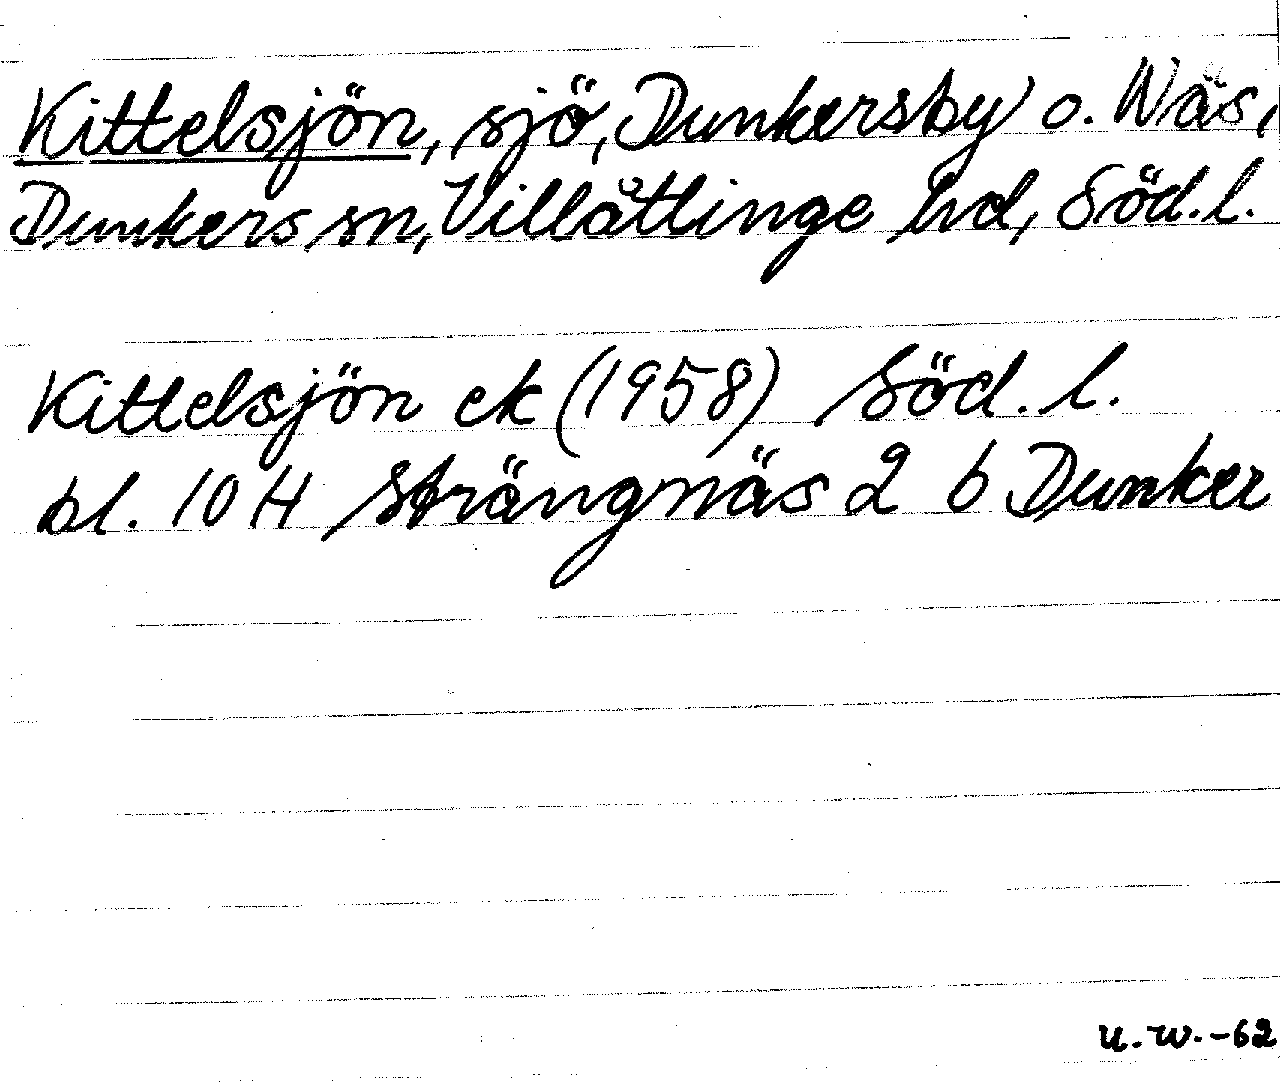 Kittelsjön, sjö, Dunkersby o. Näs,
Dunkers sn, Villåttinge hd, Söd. l.
Kittelsjön ek (1958) Söd. l.
bl. 10 H Strängnäs 2 b Dunker
U. W. -62